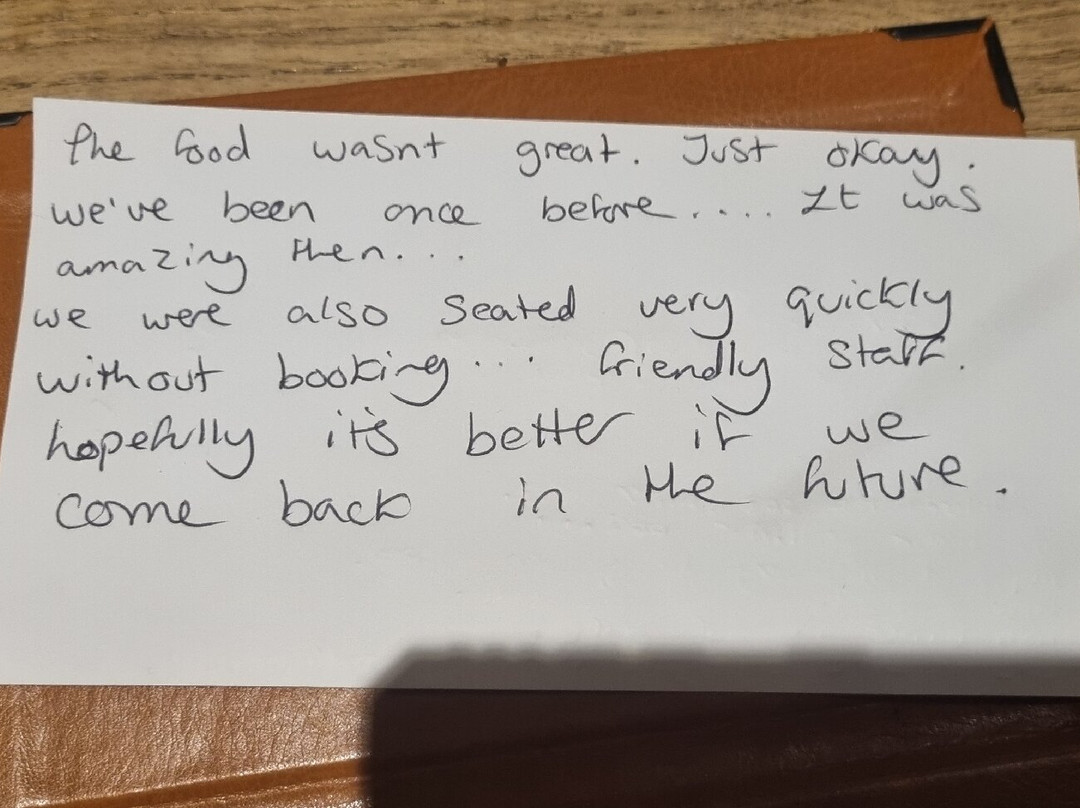 the food wasnt great. Just okay.
we've been once before.... It was
amazing then...
we were also seated very quickly
without booking... friendly staff.
hopefully it's better if we
come back in the future.